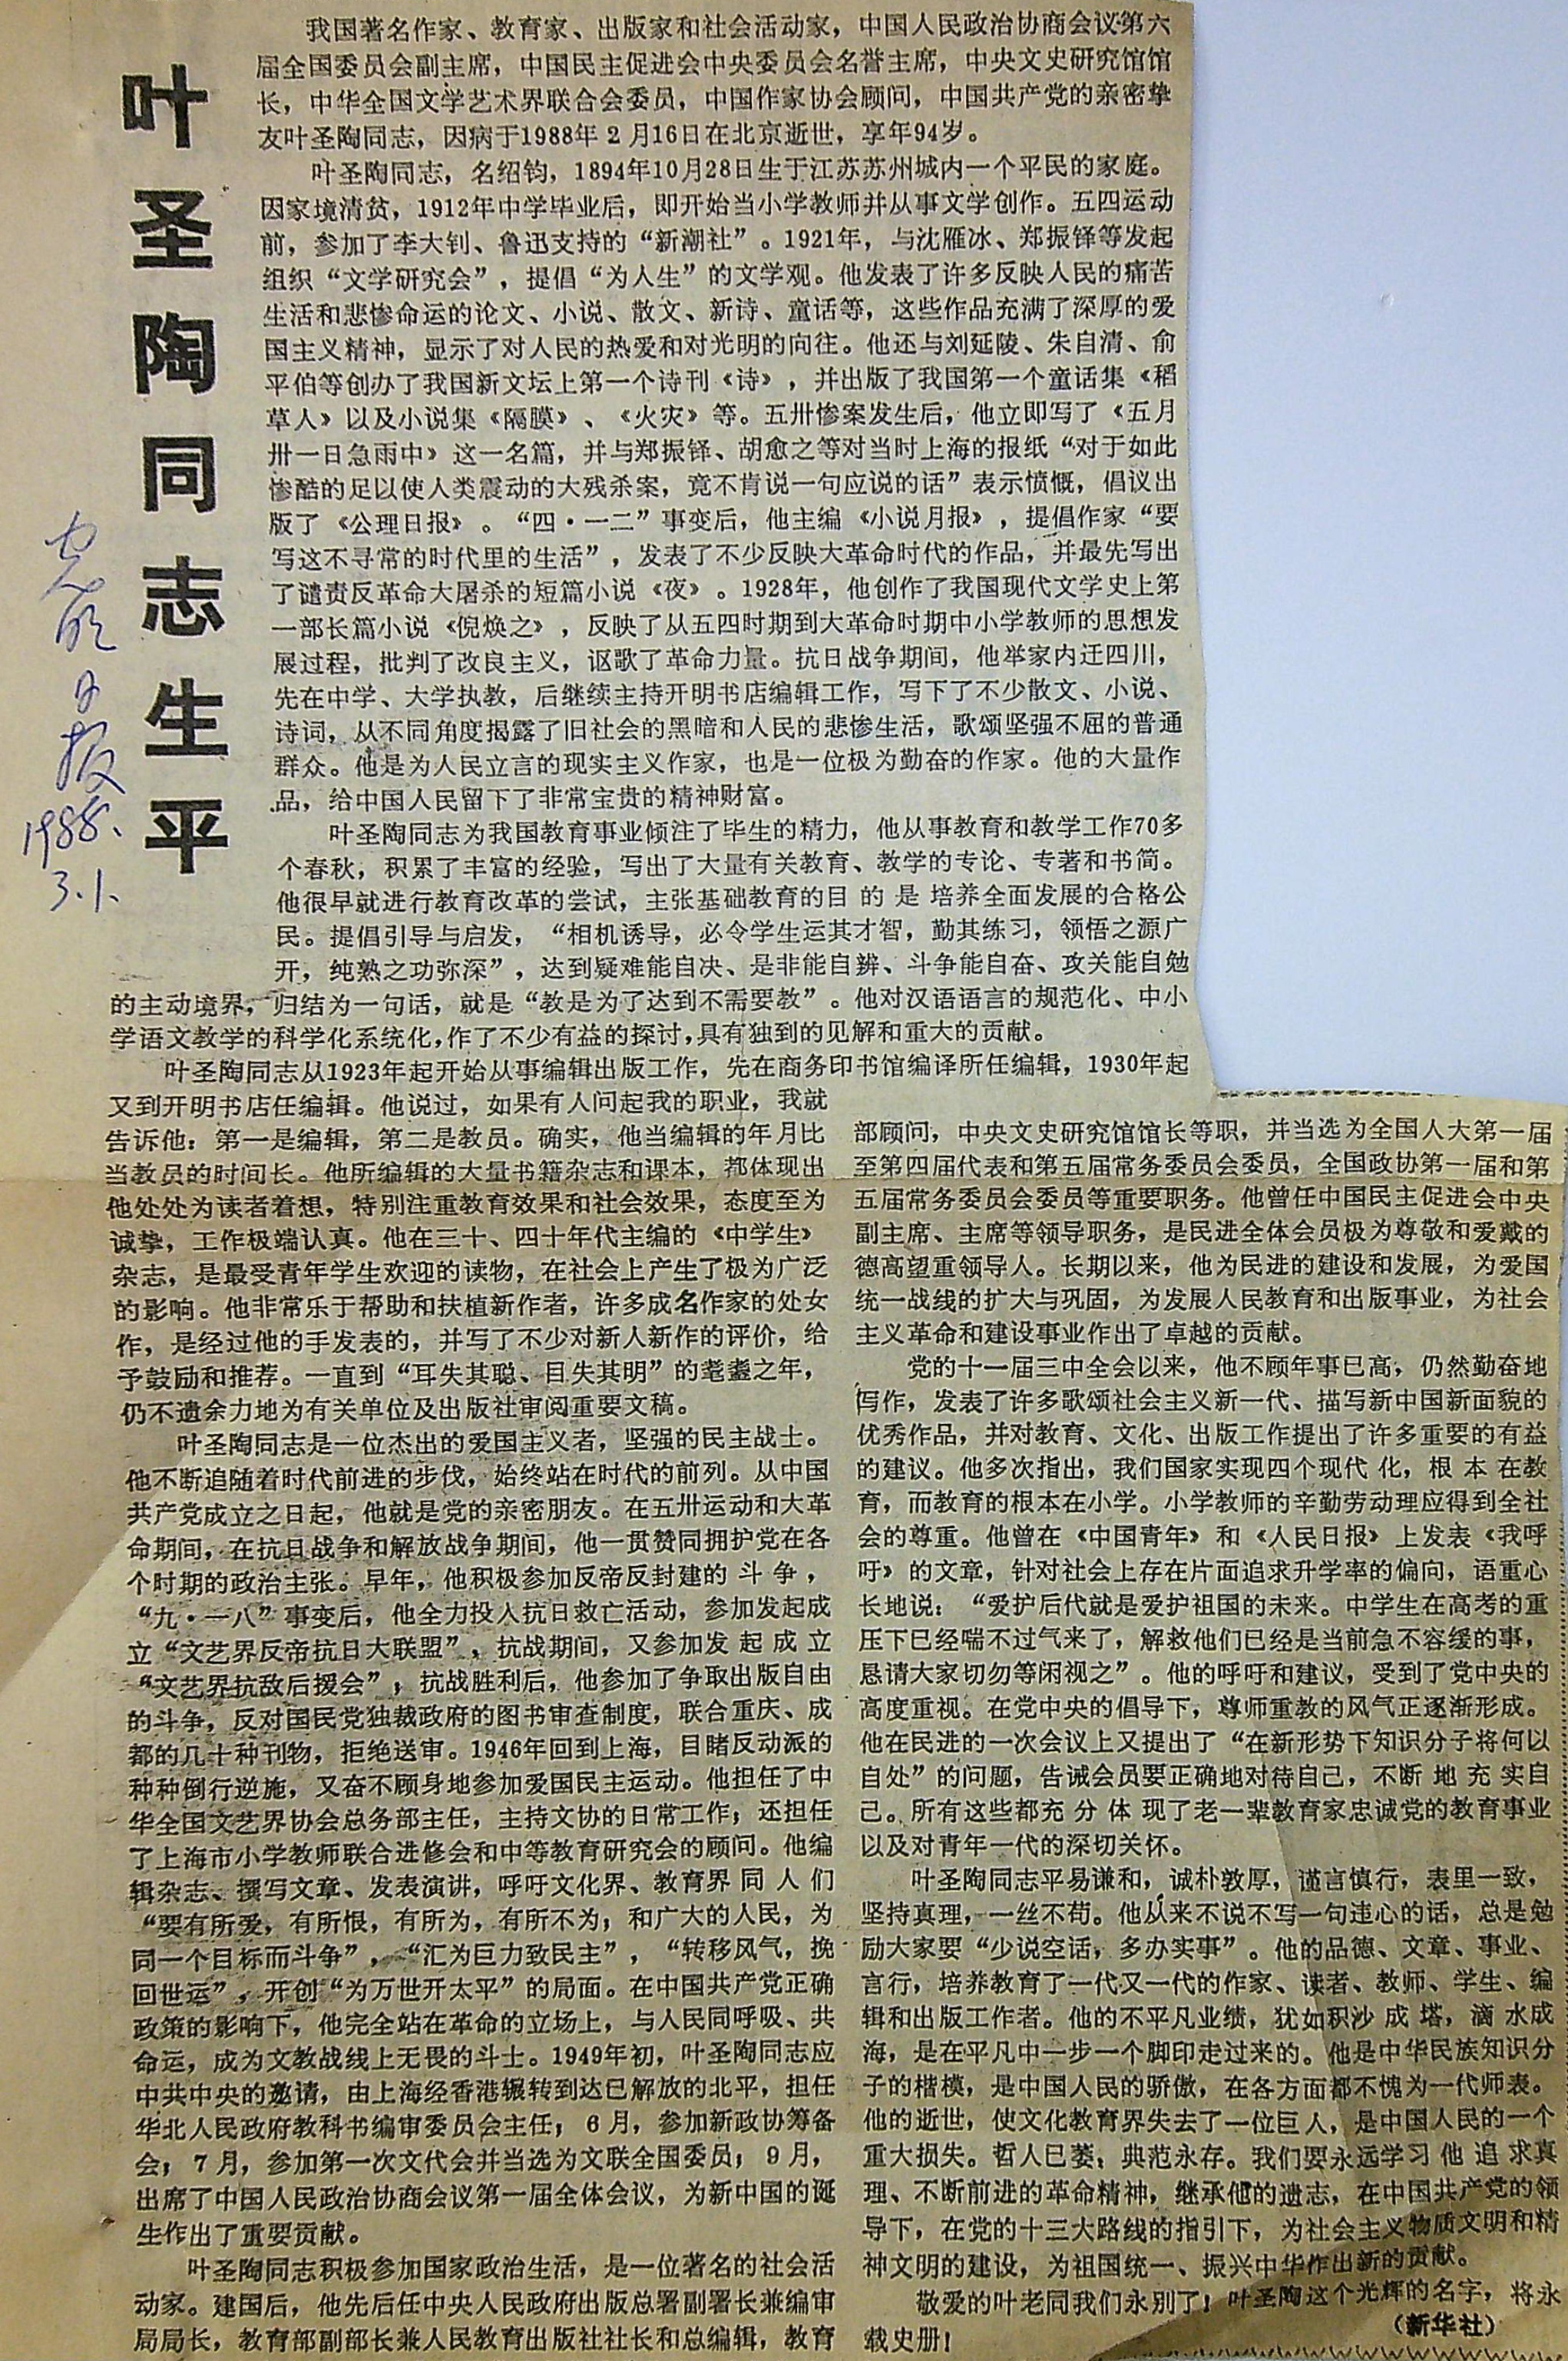 叶圣陶同志生平
光明日报
1988.
3.1.
我国著名作家、教育家、出版家和社会活动家，中国人民政治协商会议第六
届全国委员会副主席，中国民主促进会中央委员会名誉主席，中央文史研究馆馆
长，中华全国文学艺术界联合会委员，中国作家协会顾问，中国共产党的亲密挚
友叶圣陶同志，因病于1988年2月16日在北京逝世，享年94岁。
叶圣陶同志，名绍钧，1894年10月28日生于江苏苏州城内一个平民的家庭。
因家境清贫，1912年中学毕业后，即开始当小学教师并从事文学创作。五四运动
前，参加了李大钊、鲁迅支持的“新潮社”。1921年，与沈雁冰、郑振铎等发起
组织“文学研究会”，提倡“为人生”的文学观。他发表了许多反映人民的痛苦
生活和悲惨命运的论文、小说、散文、新诗、童话等，这些作品充满了深厚的爱
国主义精神，显示了对人民的热爱和对光明的向往。他还与刘延陵、朱自清、俞
平伯等创办了我国新文坛上第一个诗刊《诗》，并出版了我国第一个童话集《稻
草人》以及小说集《隔膜》、《火灾》等。五卅惨案发生后，他立即写了《五月
卅一日急雨中》这一名篇，并与郑振铎、胡愈之等对当时上海的报纸“对于如此
惨酷的足以使人类震动的大残杀案，竟不肯说一句应说的话”表示愤慨，倡议出
版了《公理日报》。“四·一二”事变后，他主编《小说月报》，提倡作家“要
写这不寻常的时代里的生活”，发表了不少反映大革命时代的作品，并最先写出
了谴责反革命大屠杀的短篇小说《夜》。1928年，他创作了我国现代文学史上第
一部长篇小说《倪焕之》，反映了从五四时期到大革命时期中小学教师的思想发
展过程，批判了改良主义，讴歌了革命力量。抗日战争期间，他举家内迁四川，
先在中学、大学执教，后继续主持开明书店编辑工作，写下了不少散文、小说、
诗词，从不同角度揭露了旧社会的黑暗和人民的悲惨生活，歌颂坚强不屈的普通
群众。他是为人民立言的现实主义作家，也是一位极为勤奋的作家。他的大量作
品，给中国人民留下了非常宝贵的精神财富。
叶圣陶同志为我国教育事业倾注了毕生的精力，他从事教育和教学工作70多
个春秋，积累了丰富的经验，写出了大量有关教育、教学的专论、专著和书简。
他很早就进行教育改革的尝试，主张基础教育的目的是培养全面发展的合格公
民。提倡引导与启发，“相机诱导，必令学生运其才智，勤其练习，领悟之源广
开，纯熟之功弥深”，达到疑难能自决、是非能自辨、斗争能自奋、攻关能自勉
的主动境界，归结为一句话，就是“教是为了达到不需要教”。他对汉语语言的规范化、中小
学语文教学的科学化系统化，作了不少有益的探讨，具有独到的见解和重大的贡献。
叶圣陶同志从1923年起开始从事编辑出版工作，先在商务印书馆编译所任编辑，1930年起
又到开明书店任编辑。他说过，如果有人问起我的职业，我就
告诉他：第一是编辑，第二是教员。确实，他当编辑的年月比
当教员的时间长。他所编辑的大量书籍杂志和课本，都体现出
他处处为读者着想，特别注重教育效果和社会效果，态度至为
诚挚，工作极端认真。他在三十、四十年代主编的《中学生》
杂志，是最受青年学生欢迎的读物，在社会上产生了极为广泛
的影响。他非常乐于帮助和扶植新作者，许多成名作家的处女
作，是经过他的手发表的，并写了不少对新人新作的评价，给
予鼓励和推荐。一直到“耳失其聪、目失其明”的耄耋之年，
仍不遗余力地为有关单位及出版社审阅重要文稿。
叶圣陶同志是一位杰出的爱国主义者，坚强的民主战士。
他不断追随着时代前进的步伐，始终站在时代的前列。从中国
共产党成立之日起，他就是党的亲密朋友。在五卅运动和大革
命期间，在抗日战争和解放战争期间，他一贯赞同拥护党在各
个时期的政治主张。早年，他积极参加反帝反封建的斗争，
“九·一八”事变后，他全力投入抗日救亡活动，参加发起成
立“文艺界反帝抗日大联盟”，抗战期间，又参加发起成立
“文艺界抗敌后援会”，抗战胜利后，他参加了争取出版自由
的斗争，反对国民党独裁政府的图书审查制度，联合重庆、成
都的几十种刊物，拒绝送审。1946年回到上海，目睹反动派的
种种倒行逆施，又奋不顾身地参加爱国民主运动。他担任了中
华全国文艺界协会总务部主任，主持文协的日常工作；还担任
了上海市小学教师联合进修会和中等教育研究会的顾问。他编
辑杂志、撰写文章、发表演讲，呼吁文化界、教育界同人们
“要有所爱，有所恨，有所为，有所不为；和广大的人民，为
同一个目标而斗争”，“汇为巨力致民主”，“转移风气，挽
回世运”，开创“为万世开太平”的局面。在中国共产党正确
政策的影响下，他完全站在革命的立场上，与人民同呼吸、共
命运，成为文教战线上无畏的斗士。1949年初，叶圣陶同志应
中共中央的邀请，由上海经香港辗转到达已解放的北平，担任
华北人民政府教科书编审委员会主任；6月，参加新政协筹备
会；7月，参加第一次文代会并当选为文联全国委员；9月，
出席了中国人民政治协商会议第一届全体会议，为新中国的诞
生作出了重要贡献。
叶圣陶同志积极参加国家政治生活，是一位著名的社会活
动家。建国后，他先后任中央人民政府出版总署副署长兼编审
局局长，教育部副部长兼人民教育出版社社长和总编辑，教育
部顾问，中央文史研究馆馆长等职，并当选为全国人大第一届
至第四届代表和第五届常务委员会委员，全国政协第一届和第
五届常务委员会委员等重要职务。他曾任中国民主促进会中央
副主席、主席等领导职务，是民进全体会员极为尊敬和爱戴的
德高望重领导人。长期以来，他为民进的建设和发展，为爱国
统一战线的扩大与巩固，为发展人民教育和出版事业，为社会
主义革命和建设事业作出了卓越的贡献。
党的十一届三中全会以来，他不顾年事已高，仍然勤奋地
写作，发表了许多歌颂社会主义新一代、描写新中国新面貌的
优秀作品，并对教育、文化、出版工作提出了许多重要的有益
的建议。他多次指出，我们国家实现四个现代化，根本在教
育，而教育的根本在小学。小学教师的辛勤劳动理应得到全社
会的尊重。他曾在《中国青年》和《人民日报》上发表《我呼
吁》的文章，针对社会上存在片面追求升学率的偏向，语重心
长地说：“爱护后代就是爱护祖国的未来。中学生在高考的重
压下已经喘不过气来了，解救他们已经是当前急不容缓的事，
恳请大家切勿等闲视之”。他的呼吁和建议，受到了党中央的
高度重视。在党中央的倡导下，尊师重教的风气正逐渐形成。
他在民进的一次会议上又提出了“在新形势下知识分子将何以
自处”的问题，告诫会员要正确地对待自己，不断地充实自
己。所有这些都充分体现了老一辈教育家忠诚党的教育事业
以及对青年一代的深切关怀。
叶圣陶同志平易谦和，诚朴敦厚，谨言慎行，表里一致，
坚持真理，一丝不苟。他从来不说不写一句违心的话，总是勉
励大家要“少说空话，多办实事”。他的品德、文章、事业、
言行，培养教育了一代又一代的作家、读者、教师、学生、编
辑和出版工作者。他的不平凡业绩，犹如积沙成塔，滴水成
海，是在平凡中一步一个脚印走过来的。他是中华民族知识分
子的楷模，是中国人民的骄傲，在各方面都不愧为一代师表。
他的逝世，使文化教育界失去了一位巨人，是中国人民的一个
重大损失。哲人已萎，典范永存。我们要永远学习他追求真
理、不断前进的革命精神，继承他的遗志，在中国共产党的领
导下，在党的十三大路线的指引下，为社会主义物质文明和精
神文明的建设，为祖国统一、振兴中华作出新的贡献。
敬爱的叶老同我们永别了！叶圣陶这个光辉的名字，将永
载史册！
（新华社）